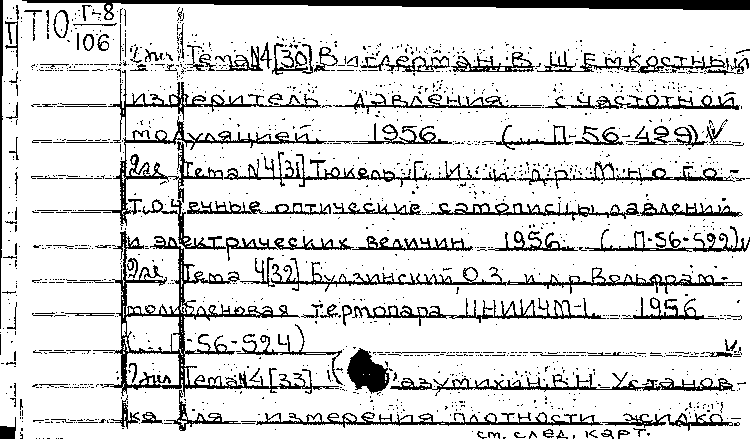 Т10 Т-8
106
2 экз Тема №4[30] Виглерман, В. Ш. Емкостный
измеритель давления с частотной
модуляцией. 1956. (... П-56-499) √
2 экз. Тема №4[31] Тюкель, Г. И. и др. Много-
точечные оптические самописцы давлений
и электрических величин 1956. (... П-56-522) √
2 экз. Тема 4[32] Будзинский, О.З. и др. Вольфрам-
молибденовая термопара ЦНИИЧМ-1. 1956
(... П-56-524) √
2 экз Тема №4[33] азумихин, В.Н. Установ-
ка для измерения плотности жидко-
см. след. карт.